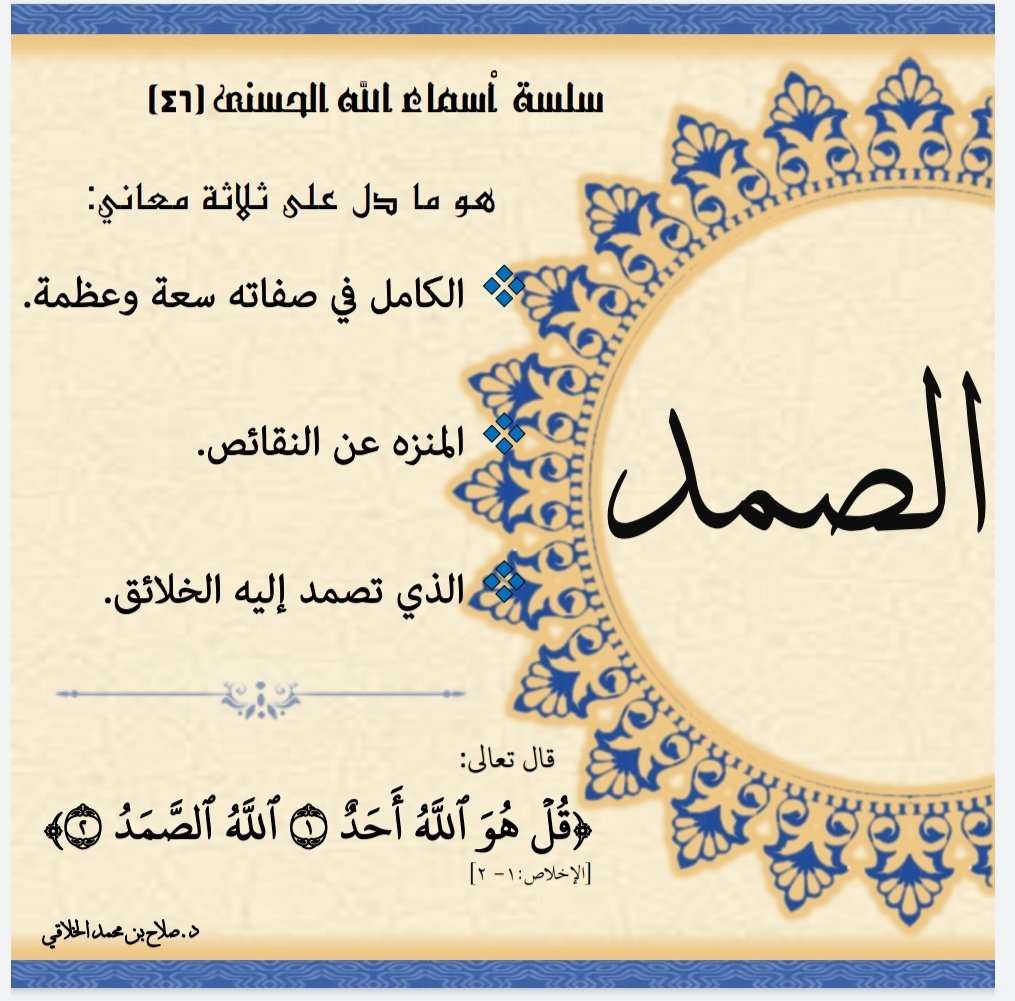 سلسة أسماء الله الحسنى (٤٦)
هو ما دل على ثلاثة معاني:
الكامل في صفاته سعة وعظمة.
المنزه عن النقائص.
الذي تصمد إليه الخلائق.
الصمد
قال تعالى:
﴿قُلۡ هُوَ ٱللَّهُ أَحَدٌ ١ ٱللَّهُ ٱلصَّمَدُ ٢﴾
[الإخلاص:١- ٢]
د.صلاح بن محمد الخلاقي